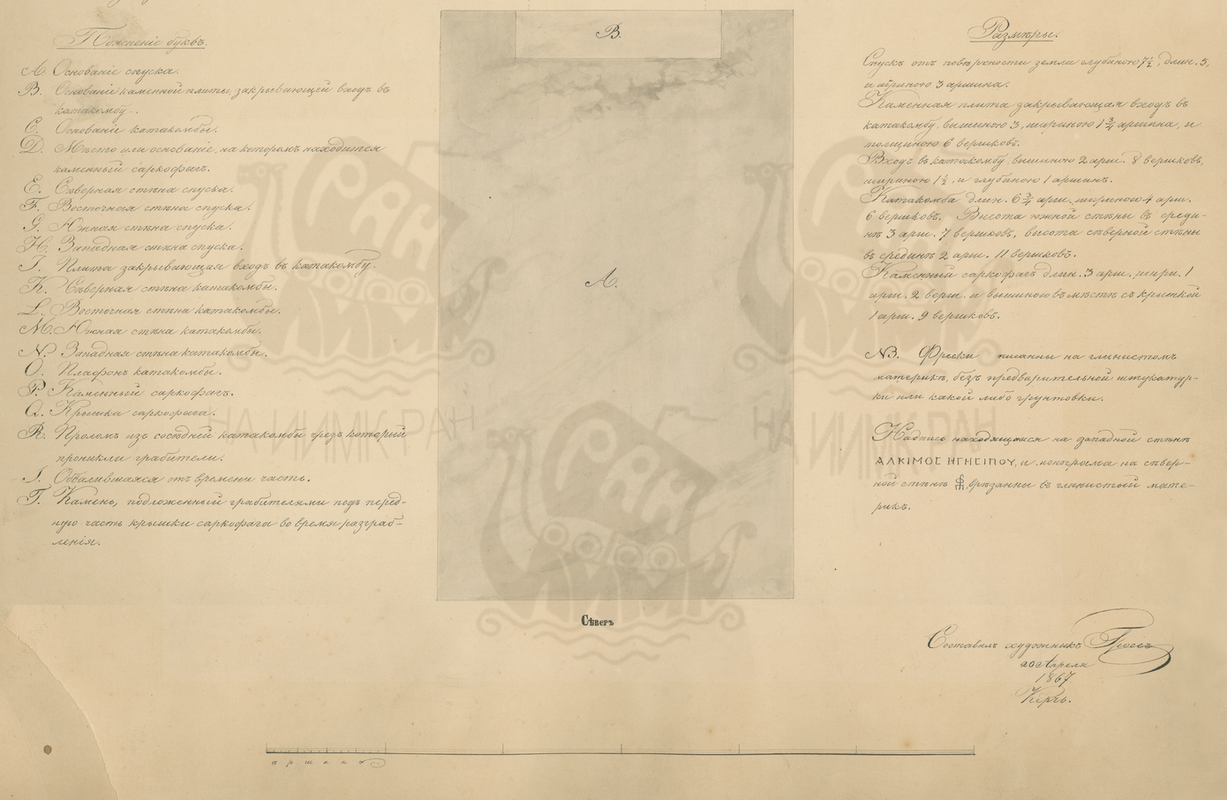 Поясненіе буквъ.
A. Основаніе спуска.
B. Основаніе каменной плиты закрывающей входъ въ
катакомбу.
C. Основаніе катакомбы.
D. Мѣсто или основаніе, на которомъ находится
каменный саркофагъ.
E. Сѣверная стѣна спуска.
F. Восточная стѣна спуска.
G. Южная стѣна спуска.
H. Западная стѣна спуска.
I. Плита закрывающая входъ въ катакомбу.
K. Сѣверная стѣна катакомбы.
L. Восточная стѣна катакомбы.
M. Южная стѣна катакомбы.
N. Западная стѣна катакомбы.
O. Плафонъ катакомбы.
P. Каменный саркофагъ.
Q. Крышка саркофага.
R. Проломъ изъ сосѣдней катакомбы чрезъ который
проникли грабители.
S. Обвалившаяся отъ времени часть.
T. Камень, подложенный грабителями подъ перед-
нюю часть крышки саркофага во время разграб-
ленія.
B.
A.
Сѣверъ
Размѣры.
Спускъ отъ поверхности земли глубиною 7½, длин. 5,
и шириною 3 аршина.
Каменная плита закрывающая входъ въ
катакомбу, вышиною 3, шириною 1¾ аршина, и
толщиною 6 вершковъ.
Входъ въ катакомбу, вышиною 2 арш. 8 вершковъ,
шириною 1½ и глубиною 1 аршинъ.
Катакомба длин. 6¾ арш. шириною 4 арш.
6 вершковъ. Высота южной стѣны въ среди-
нѣ 3 арш. 7 вершковъ, высота сѣверной стѣны
въ срединѣ 2 арш. 11 вершковъ.
Каменный саркофагъ длин. 3 арш. шири. 1
арш. 2 верш. и вышиною вмѣстѣ съ крышкой
1 арш. 9 вершковъ.
NB. Фрески писанны на глинистомъ
материкѣ, безъ предварительной штукатур-
ки или какой либо грунтовки.
Надпись находящаяся на западной стѣнѣ
ΑΛΚΙΜΟΣ ΗΓΗΣΙΠΟΥ, и монграма на сѣвер-
ной стѣнѣ врѣзанны въ глинистый мате-
рикъ.
Составилъ художникъ Гроссъ
20 Апреля
1867
Керчь.
аршинъ
НА ИИМК РАН
НА ИИМК РАН